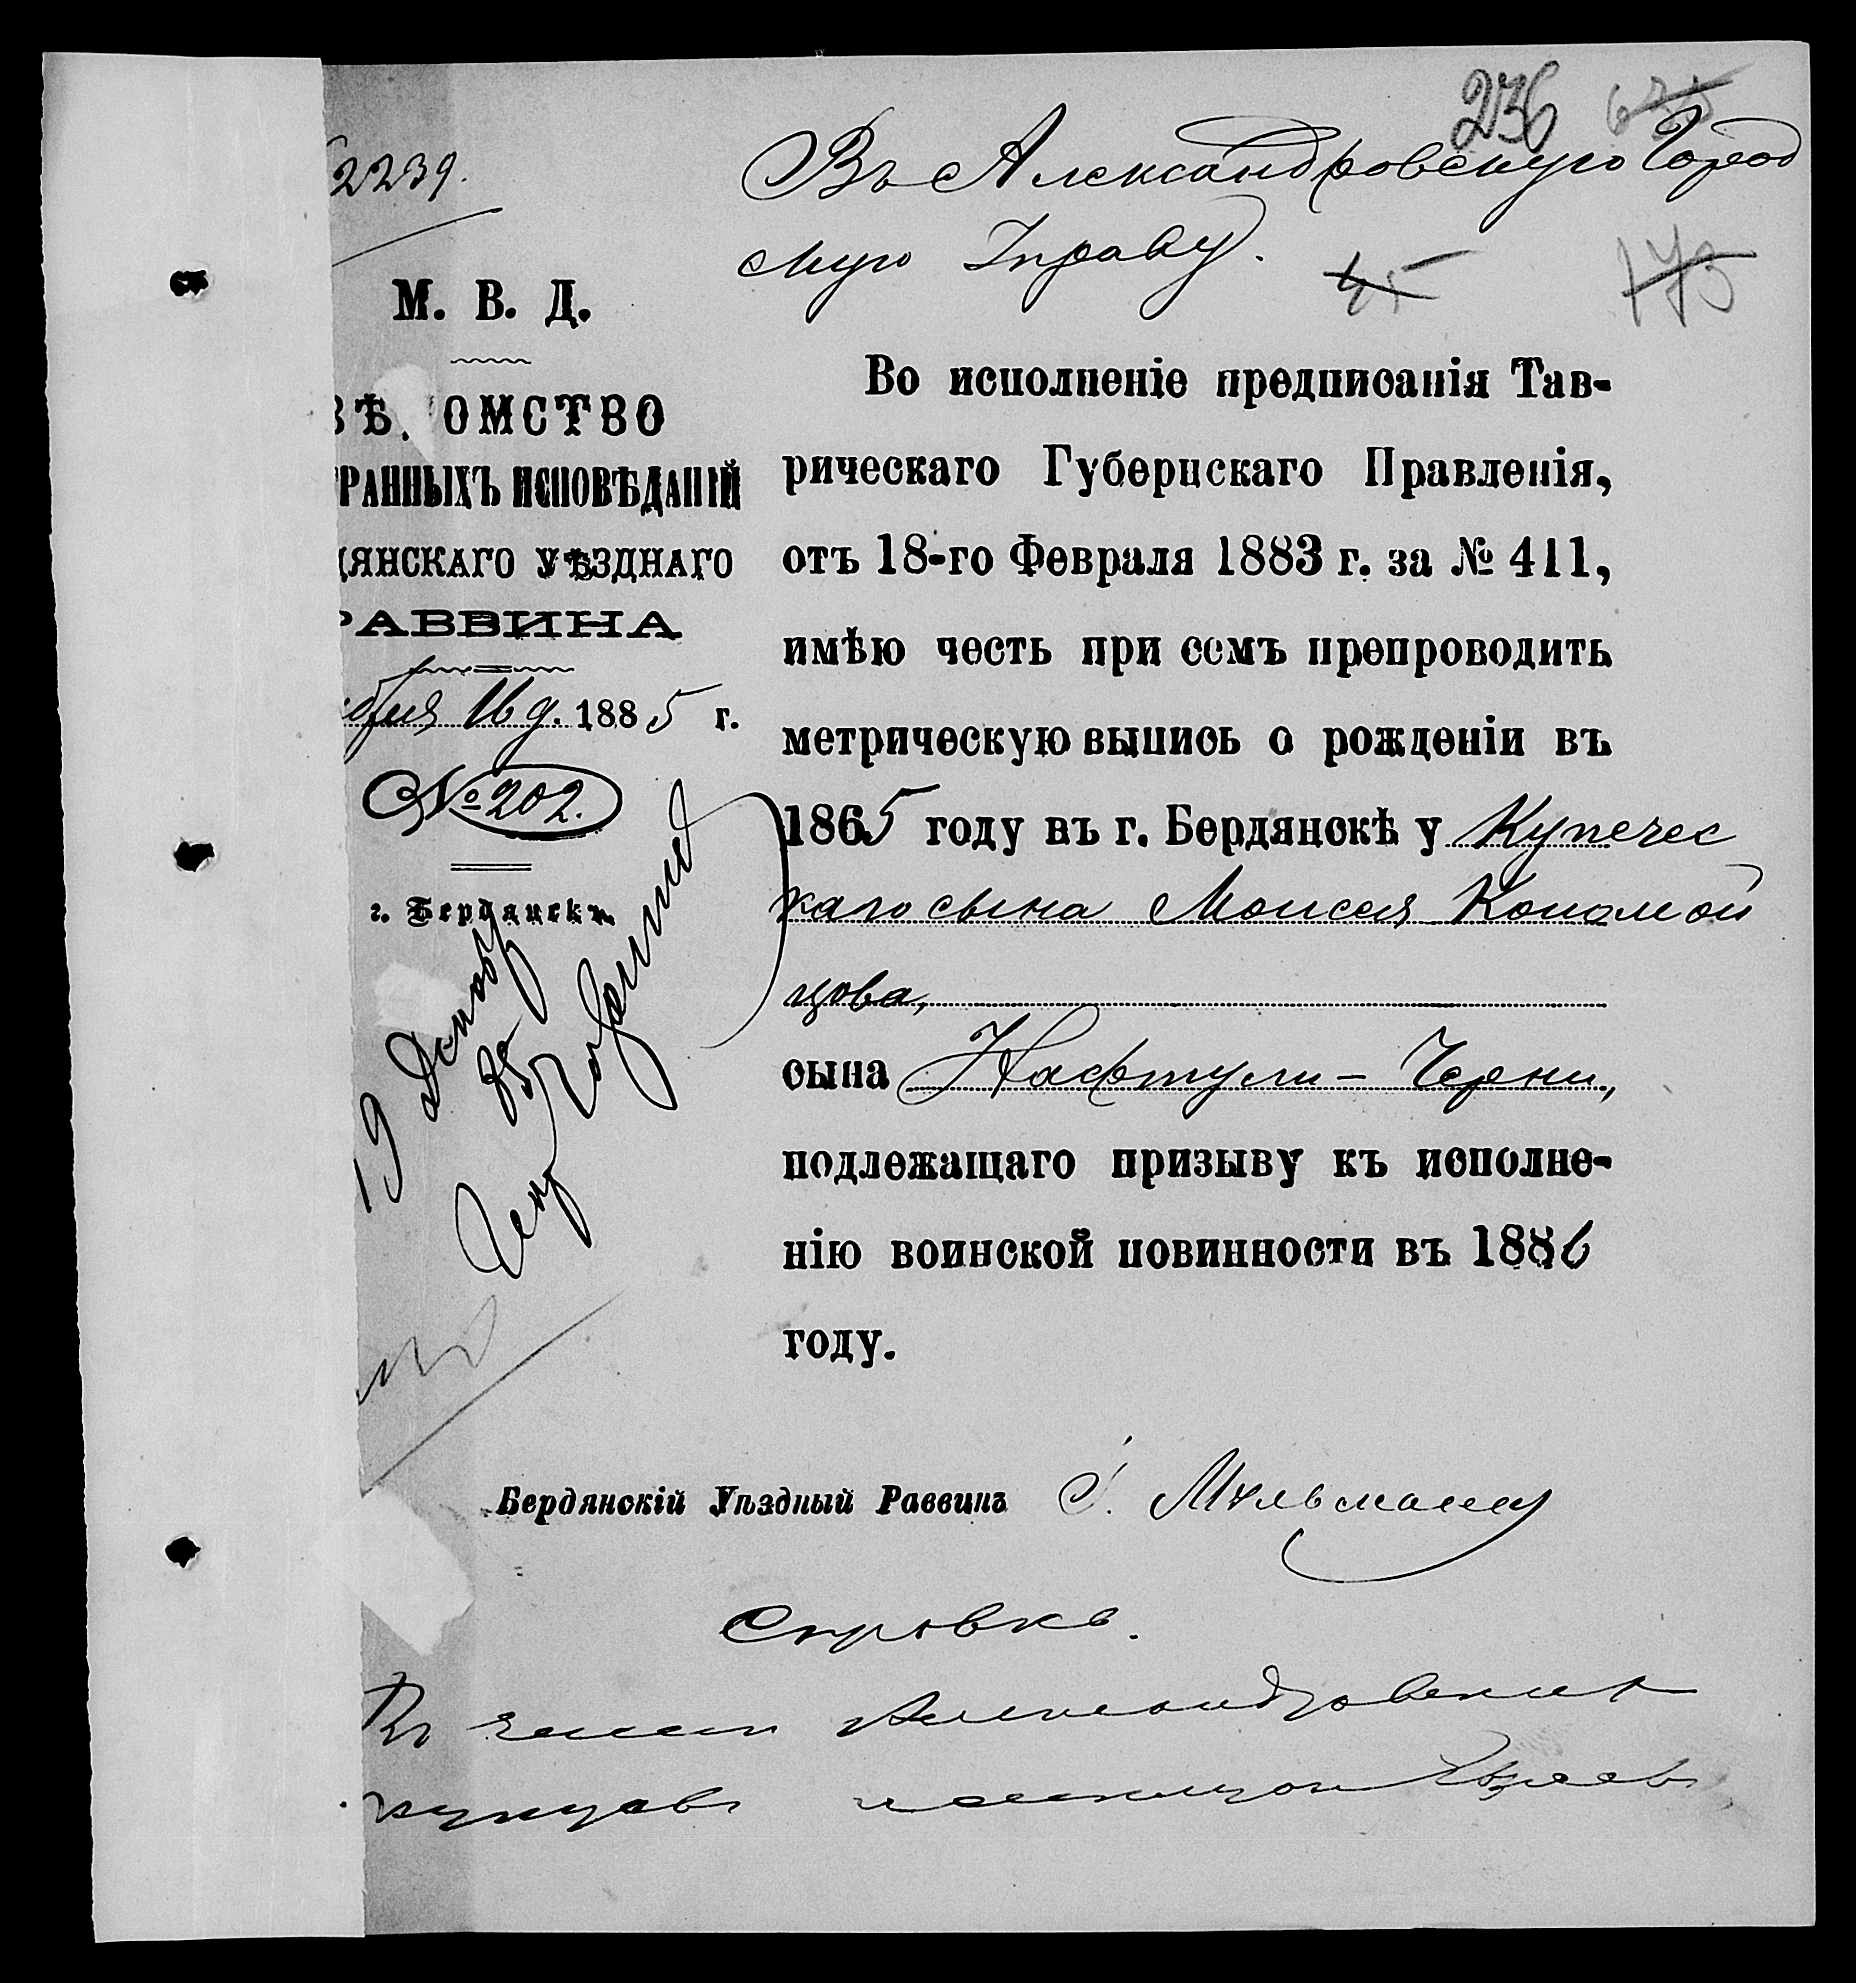 236
2239.
Въ Александровскую Город
скую Управу.
45
173
М. В. Д.
ВѢ ОМСТВО
РАННЫХЪ ИСПОВѢДАНІЙ
ДЯНСКАГО УѢЗДНАГО
РАВВИНА
бря 16 д. 1885 г.
№ 202.
г. Бердянскъ
Во исполненіе предписанія Тав-
рическаго Губернскаго Правленія,
отъ 18-го Февраля 1883 г. за № 411,
имѣю честь при семъ препроводить
метрическую выпись о рожденіи въ
1865 году въ г. Бердянскѣ у Купечес
каго сына Моисея Коцомой
цова,
сына Нафтули - Черни,
подлежащаго призыву къ исполне-
нію воинской повинности въ 1886
году.
19
85
Бердянскій Уѣздный Раввинъ І. Мильманъ
Справка.
Александровскихъ
купцовъ Евреевъ